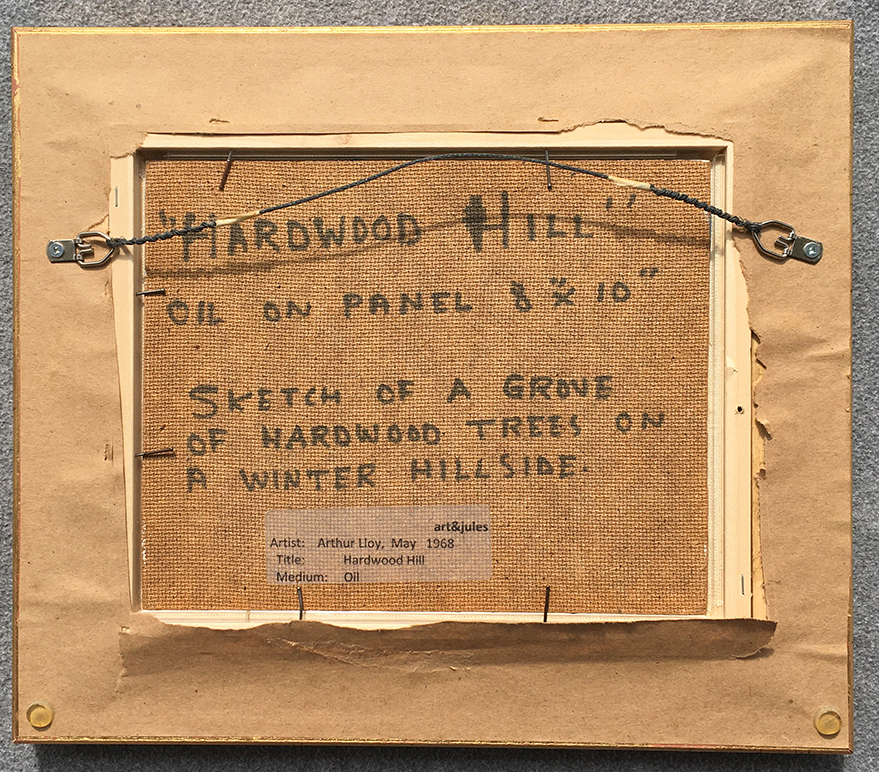 "HARDWOOD HILL"
OIL ON PANEL 8"X 10"
SKETCH OF A GROVE
OF HARDWOOD TREES ON
A WINTER HILLSIDE.
art&jules
Artist: Arthur Lloy, May 1968
Title: Hardwood Hill
Medium: Oil